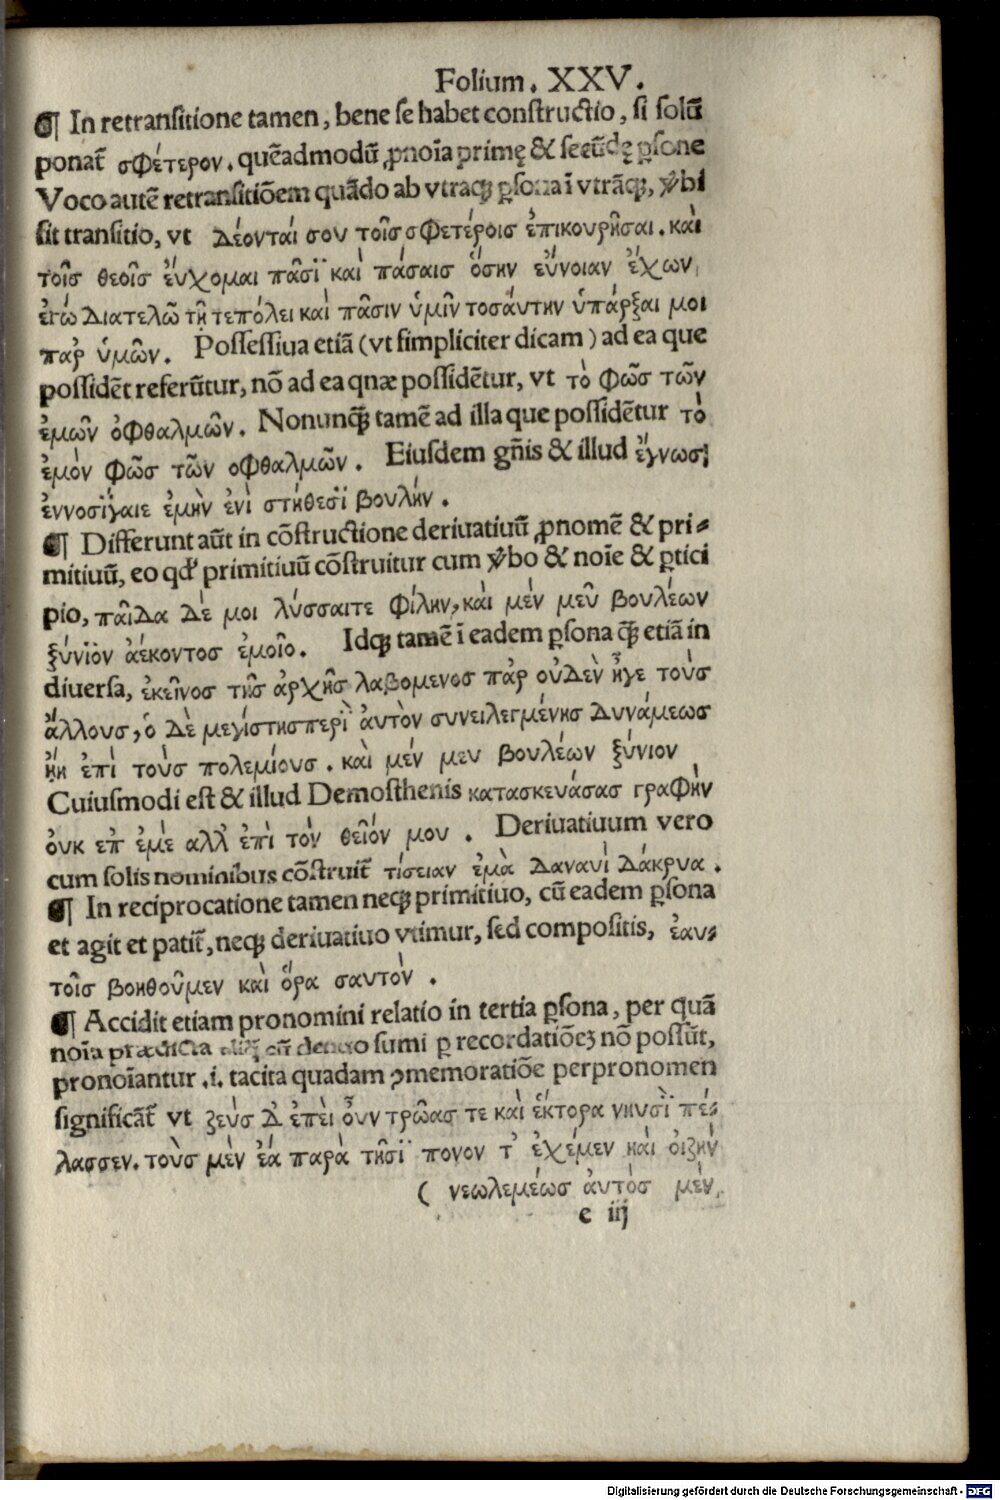 Folium. XXV.
¶ In retransitione tamen, bene se habet constructio, si solũ
ponat̃ σφέτερον. quẽadmodũ ꝓnoĩa primę & secũdę ꝑsone
Voco autẽ retransitiõem quãdo ab vtraqꝫ ꝑsona ĩ vtrãqꝫ, v̓bi
sit transitio, vt δέονται σου τοῖς σφετέροις ἐπικουρῆσαι. καὶ
τοῖς θεοῖς ἔυχομαι πᾶσϊ καὶ πάσαις ὅσην εὔνοιαν ἔχων
ἐγώ διατελῶ τῆ τεπόλει καὶ πᾶσιν ὑμῖν τοσάυτην ὑπάρξαι μοι
παρ ὑμῶν. Possessiua etiã (vt simpliciter dicam) ad ea que
possidẽt referũtur, nõ ad ea qnæ possidẽtur, vt τὸ φῶς τῶν
ἐμῶν ὀφθαλμῶν. Nonunqꝫ̃ tamẽ ad illa que possidẽtur τὸ
ἐμὸν φῶς τῶν οφθαλμῶν. Eiusdem gñis & illud ἔγνωσ;
ἐννοσίγαιε ἐμὴν ἐνὶ στήθεσϊ βουλήν.
¶ Differunt aũt in cõstructione deriuatiuũ ꝓnomẽ & pri-
mitiuũ, eo qď primitiuũ cõstruitur cum v̓bo & noĩe & ꝑtici
pio, παῖδα δὲ μοι λύσσαιτε φίλην, καὶ μέν μεῦ βουλέων
ξύνϊον ἀέκοντος ἐμοῖο. Idqꝫ tamẽ ĩ eadem ꝑsona qꝫ̃ etiã in
diuersa, ἐκεῖνος τῆς ἀρχῆς λαβομενος παρ οὐδεν ἦγε τοὺς
ἄλλους, ὁ δὲ μεγίστησπερὶ ἀυτὸν συνειλεγμένης δυνάμεως
ἤη ἐπὶ τοὺς πολεμίους. καὶ μέν μευ βουλέων ξύνιον
Cuiusmodi est & illud Demosthenis κατασκευάσας γραφὴν
ὀυκ επ ἐμὲ αλλ ἐπὶ τὸν θεῖόν μου. Deriuatiuum vero
cum solis nominibus cõstruit̃ τίσειαν ἐμὰ δαναυὶ δάκρυα.
¶ In reciprocatione tamen neqꝫ primitiuo, cũ eadem ꝑsona
et agit et patit̃, neqꝫ deriuatiuo vtimur, sed compositis, ἑαυ-
τοῖς βοηθοῦμεν καὶ ὅρα σαυτὸν.
¶ Accidit etiam pronomini relatio in tertia ꝑsona, per quã
noĩa prædicta cũ denuo sumi ꝑ recordatiõeꝫ nõ possũt,
pronoĩantur .i. tacita quadam ꝯmemoratiõe perpronomen
significãt̃ vt ζεύς δ ἐπὲι ὀυν τρῶας τε καὶ ἕκτορα νηυσϊ πέ-
λασσεν. τοὺς μὲν ἐά παρὰ τῆσϊ πονον τ ἐχέμεν καὶ ὀιζὴν
( νεωλεμέως ἀυτὸς μὲν
e iij
Digitalisierung gefördert durch die Deutsche Forschungsgemeinschaft - DFG